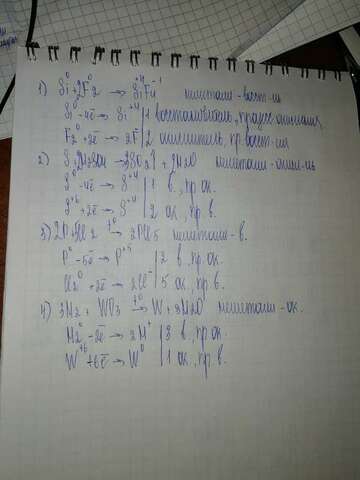 1) Si⁰ + 2F₂⁰ → Si⁺⁴F₄⁻¹ неметалл - восст-ль
Si⁰ - 4e̅ → Si⁺⁴ | 1 восстановитель, процесс окисления
F₂⁰ + 2e̅ → 2F⁻ | 2 окислитель, пр. восст-ия
2) неметалл - окисл-ль
S⁰ - 4e̅ → S⁺⁴ | 1 в., пр. ок.
S⁺⁶ + 2e̅ → S⁺⁴ | 2 ок., пр. в.
3) 2P + 5Cl₂ → 2PCl₅ неметалл - в.
P⁰ - 5e̅ → P⁺⁵ | 2 в., пр. ок.
Cl₂⁰ + 2e̅ → 2Cl⁻ | 5 ок., пр. в.
4) 3H₂ + WO₃ → W + 3H₂O неметалл - ок.
H₂⁰ - 2e̅ → 2H⁺ | 3 в., пр. ок.
W⁺⁶ + 6e̅ → W⁰ | 1 ок., пр. в.